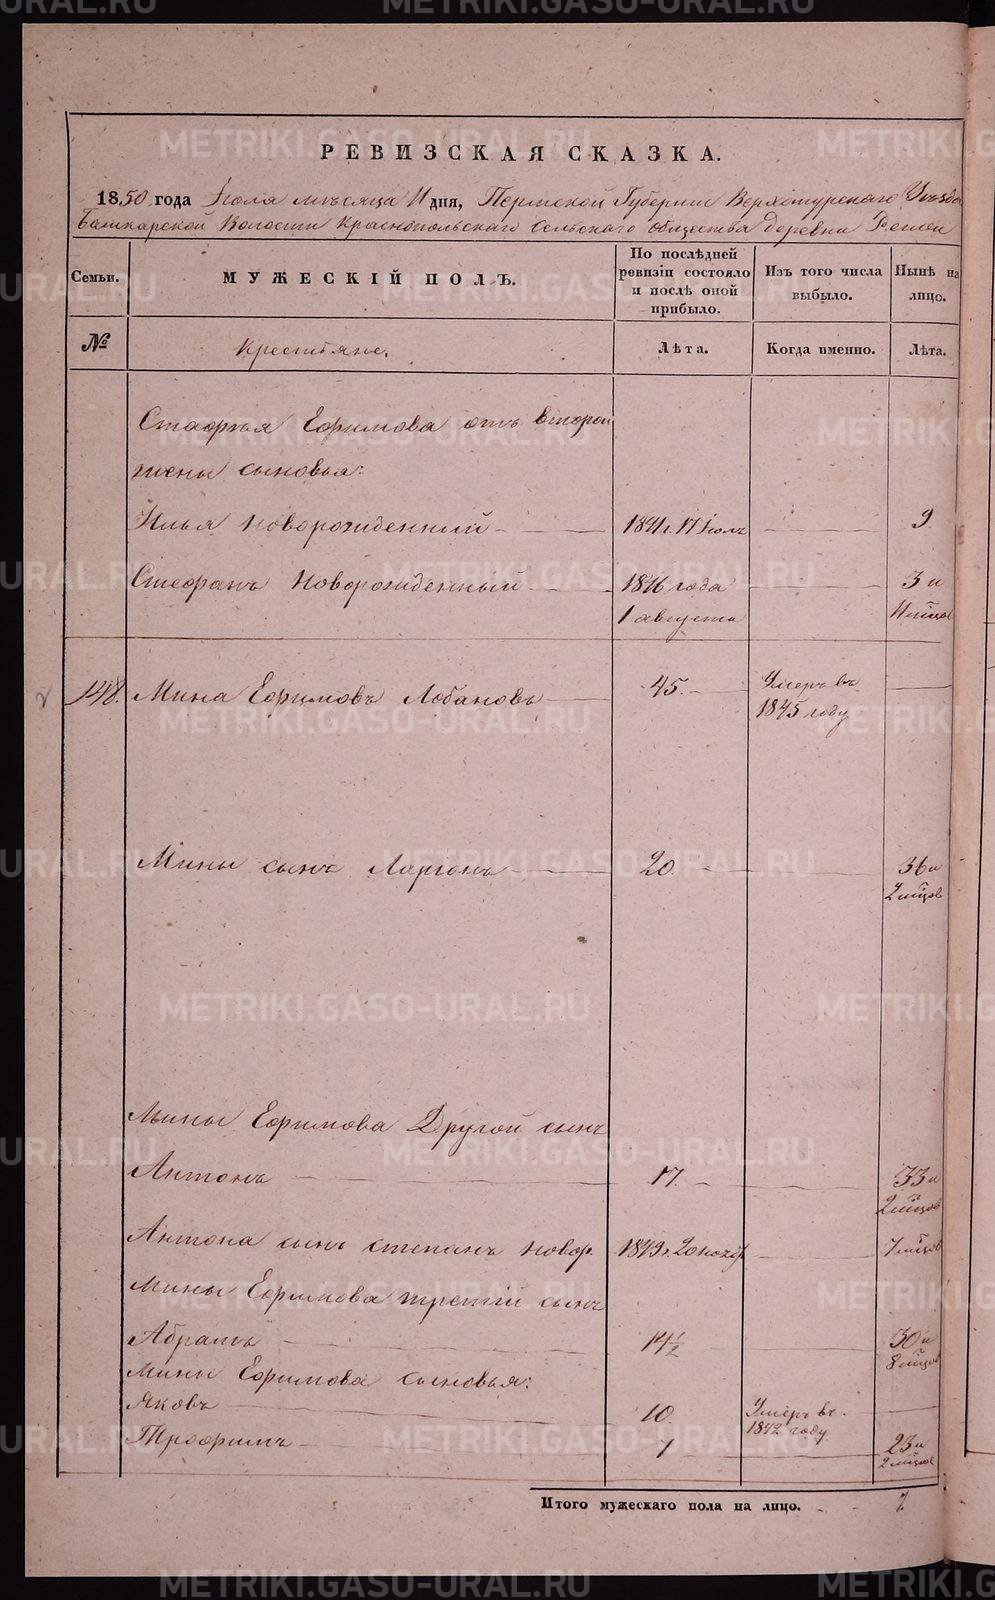 METRIKI.GASO-URAL.RU
РЕВИЗСКАЯ СКАЗКА.
1850 года Іюля мѣсяца 11 дня, Пермской Губерніи Верхотурскаго Уѣзда
Башкарской Волости Краснопольскаго Сельскаго общества деревни
Семьи. МУЖЕСКІЙ ПОЛЪ. По послѣдней ревизіи состояло и послѣ оной прибыло. Изъ того числа выбыло. Нынѣ на лицо.
№ Крестьяне. Лѣта. Когда именно. Лѣта.
Ефимова отъ второй
жены сыновья:
Илья новорожденный 1841 г. 17 9
Стефанъ Новорожденный 1846 года 3 и
1 августа 11 мѣсцов
148. Мина Ефимовъ Лобановъ 45. Умеръ въ
1845 году
Мины сынъ Ларіонъ 20. 36 и
2 мѣсцов
Мины Ефимова Другой сынъ
Антонъ 17. 33 и
2 мѣсцов
Антона сынъ степанъ новор. 1849 г. 20 нояб 7 мѣсцов
Мины Ефимова третій сынъ
Абрамъ 14 1/2 30 и
8 мѣсцов
Мины Ефимова сыновья:
Яковъ 10. Умеръ въ
1842 году
Трофимъ 7 23 и
2 мѣсцов
Итого мужескаго пола на лицо. 7.